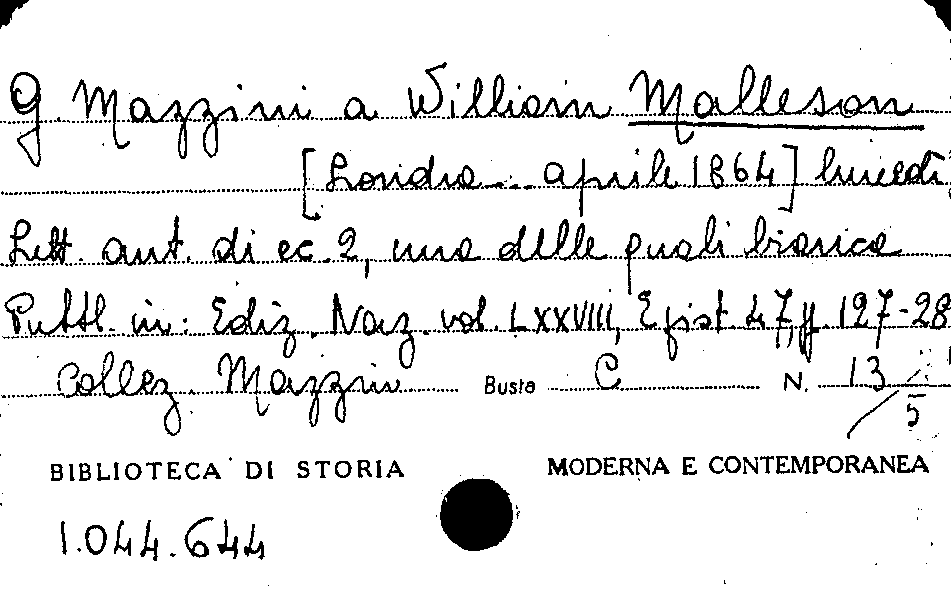 G. Mazzini a William Malleson
[Londra... aprile 1864] lunedì
Lett. aut. di cc. 2, una delle quali bianca
Pubbl. in: Ediz. Naz. vol. LXXVIII, Epist 47, pp. 127-28
Collez. Mazzini Busta C N. 13/5
BIBLIOTECA DI STORIA MODERNA E CONTEMPORANEA
1.044.644